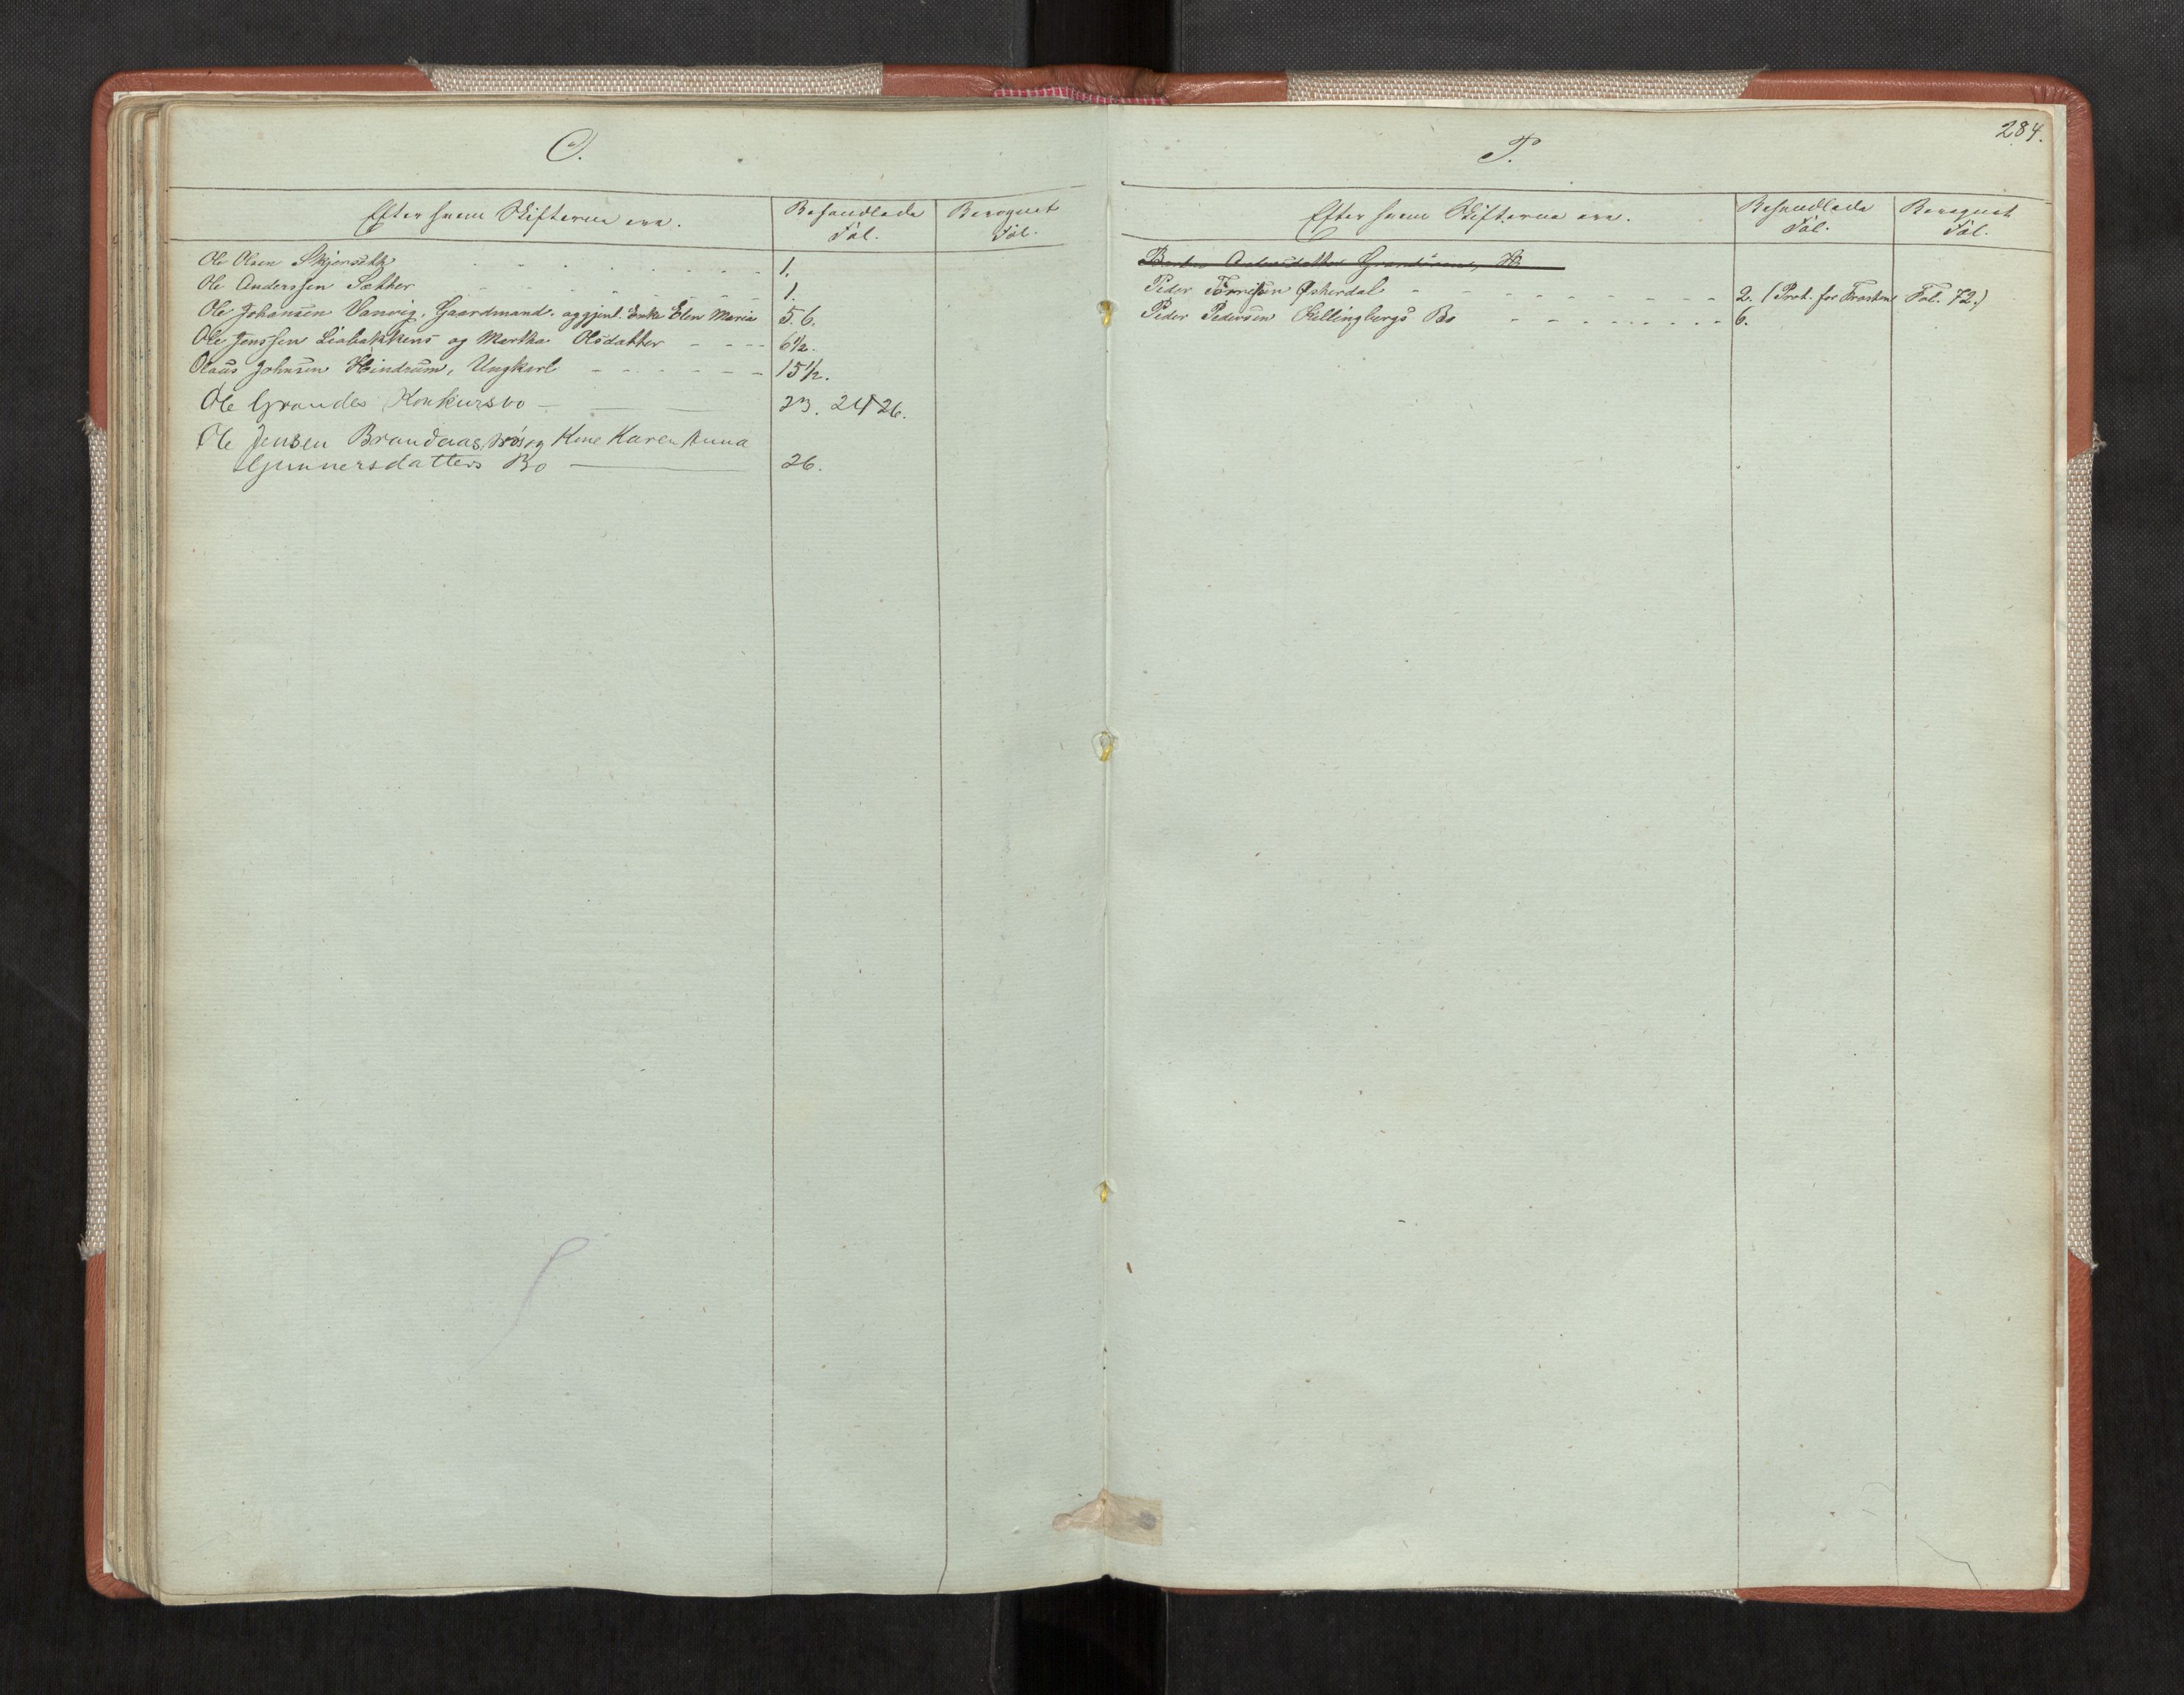 O.
Efter hvem Skifterne ere.
Behandlede Fol.
Beregnet Fol.
Ole Olsen Skjerseth - - - 1.
Ole Anderssen Sæther - - - 1.
Ole Johansen Vanvig, Gaardmand. og gjenl. Enke Elen Maria 5. 6.
Ole Jenssen Leebakkens og Martha Olsdatter - - - 6½.
Olaus Johnsen Hindrum, Ungkarl - - - 15½.
Ole Grandes Konkursbo - 23. 24 26.
Ole Jensen Brandaas, og Kone Karen Anna
Gunnersdatters Bo - 26.
284.
P.
Efter hvem Skifterne ere.
Behandlede Fol.
Beregnet Fol.
Peder Tørrissen Øsherdal - - - 2. (Prot. for Frosten Fol. 72.)
Peder Pedersen Killingbergs Bo - - - 6.